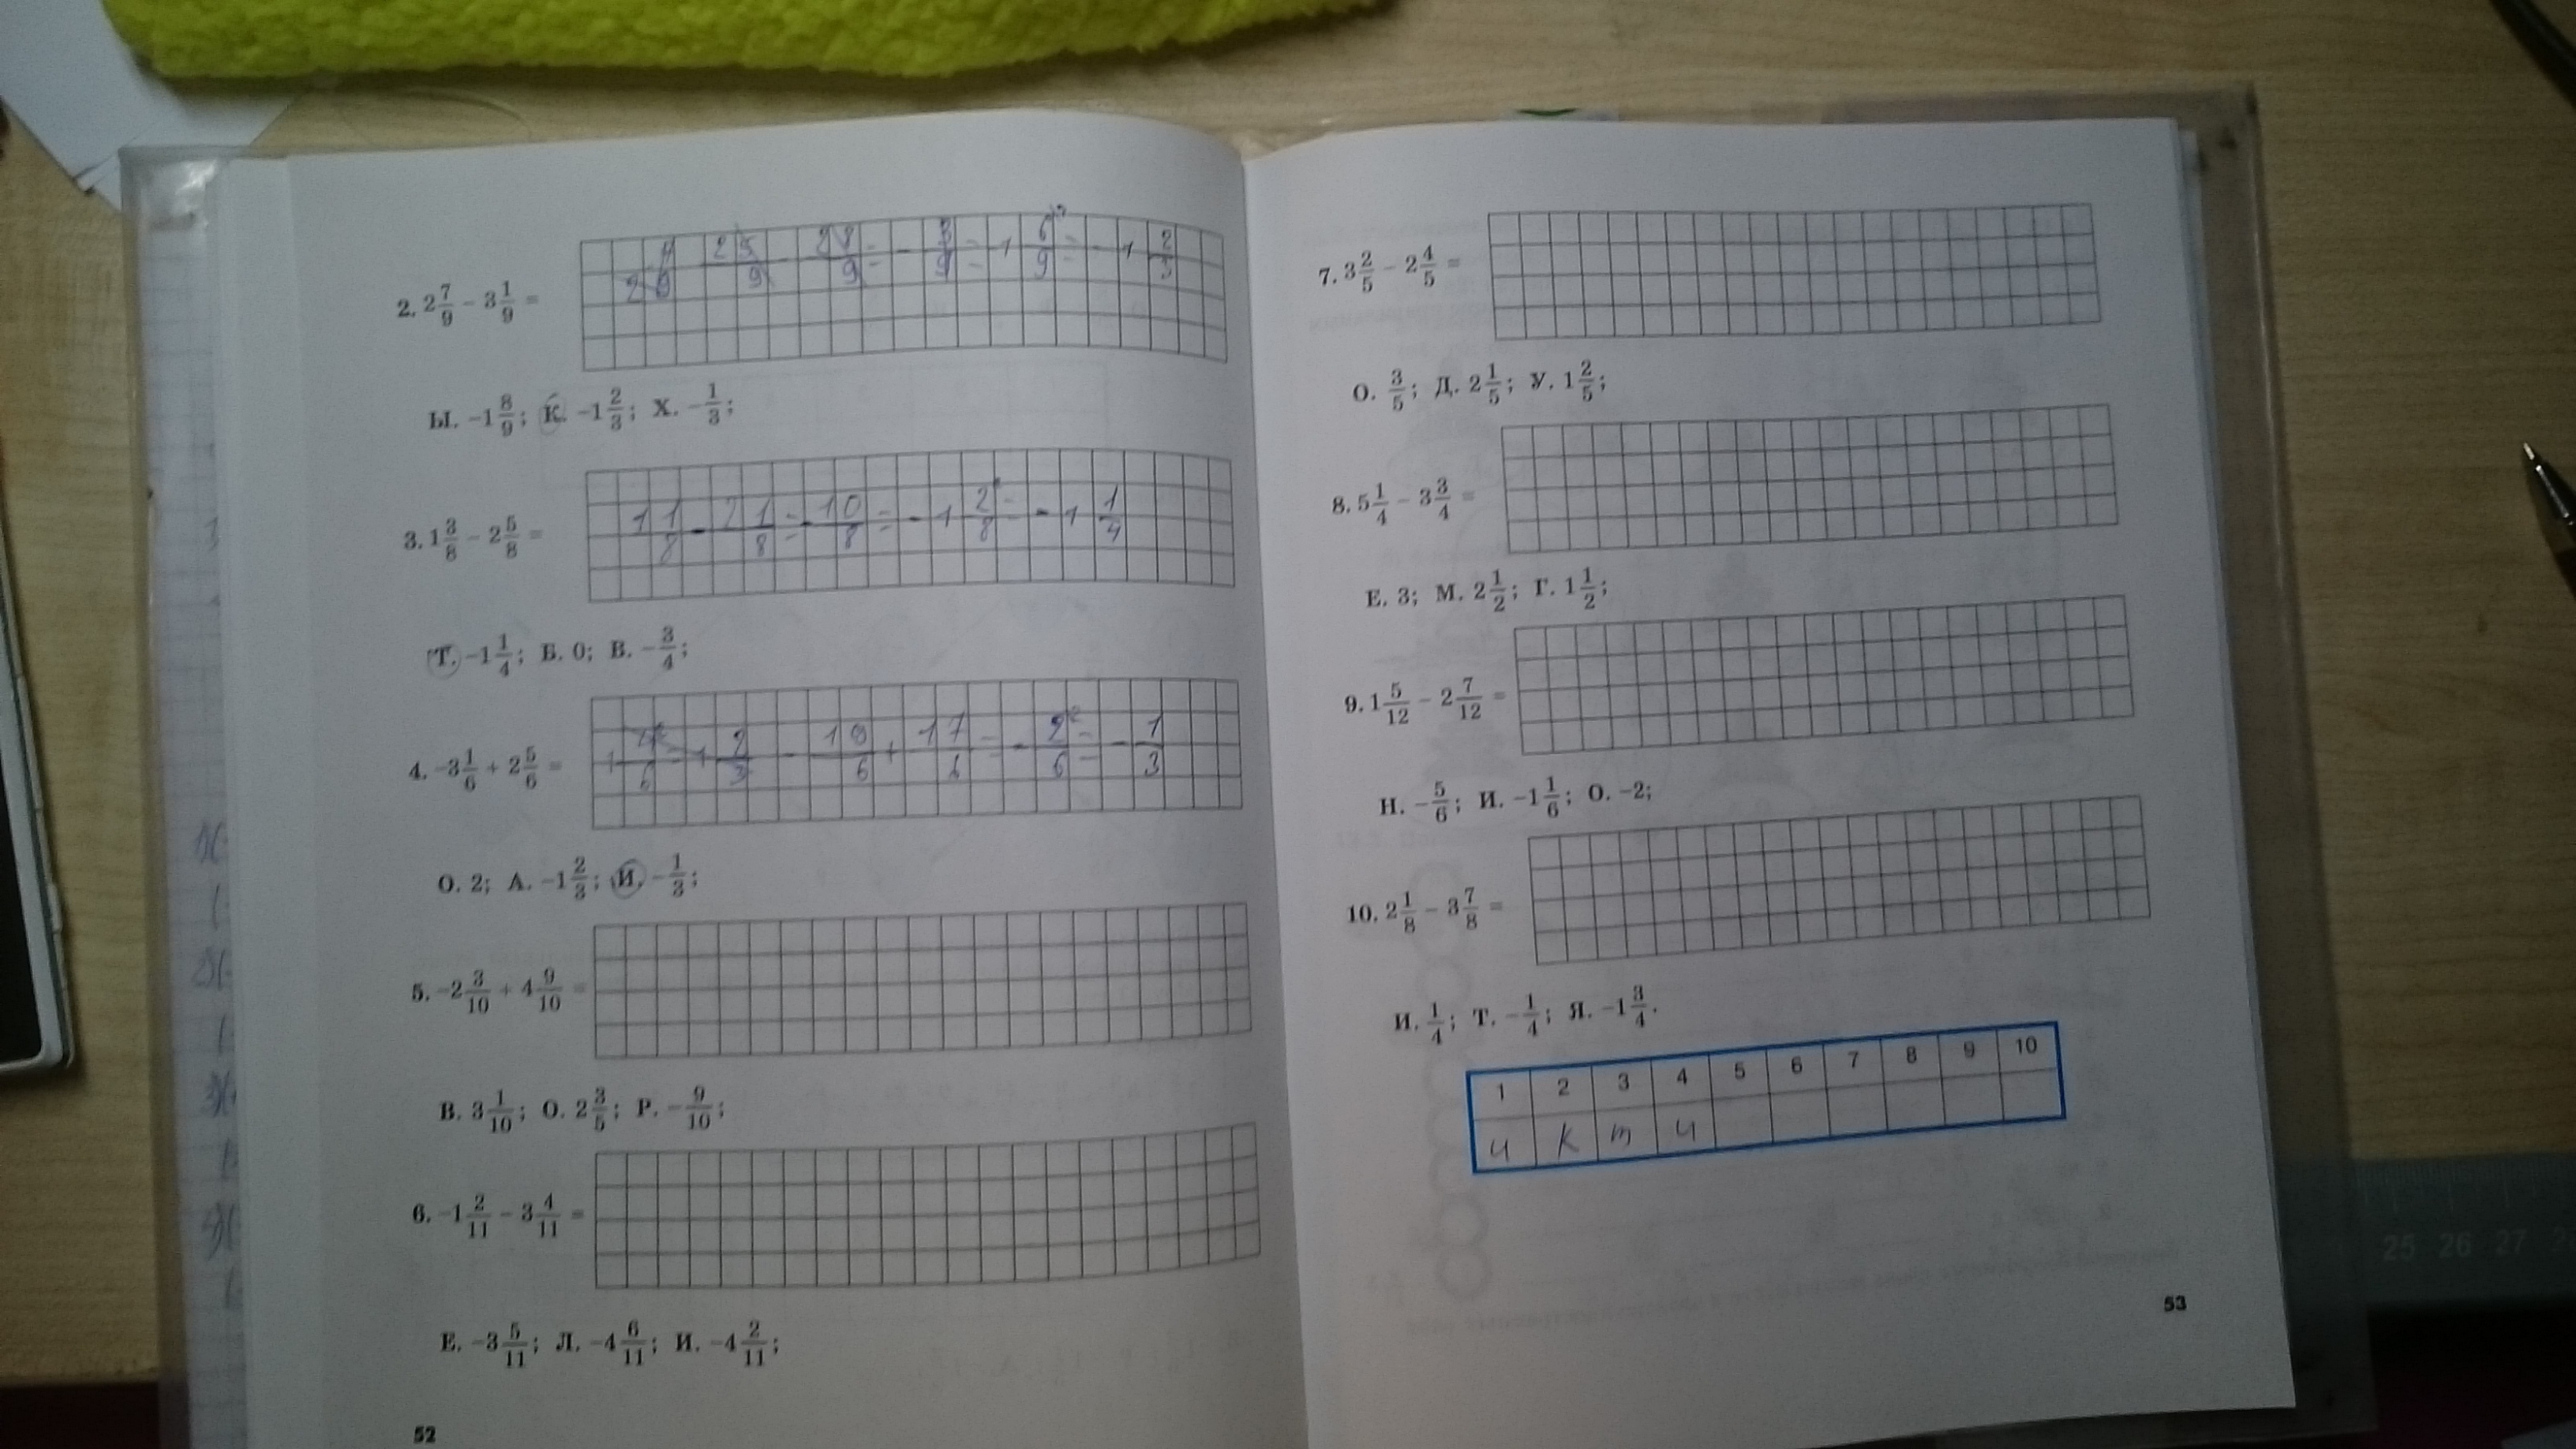 2. 2 7/9 − 3 1/9 =
25/9 − 28/9 = − 3/9 = 1 6/9 = − 1 2/3
Ы. −1 8/9; К. −1 2/3; Х. −1/3;
3. 1 3/8 − 2 5/8 =
11/8 − 21/8 = − 10/8 = − 1 2/8 = − 1 1/4
Т. −1 1/4; Б. 0; В. −3/4;
4. −3 1/6 + 2 5/6 =
− 19/6 + 17/6 = − 2/6 = − 1/3
О. 2; А. −1 2/3; И. −1/3;
5. −2 3/10 + 4 9/10 =
В. 3 1/10; О. 2 3/5; Р. −9/10;
6. −1 2/11 − 3 4/11 =
Е. −3 5/11; Л. −4 6/11; И. −4 2/11;
52
7. 3 2/5 − 2 4/5 =
О. 3/5; Д. 2 1/5; У. 1 2/5;
8. 5 1/4 − 3 3/4 =
Е. 3; М. 2 1/2; Г. 1 1/2;
9. 1 5/12 − 2 7/12 =
Н. −5/6; И. −1 1/6; О. −2;
10. 2 1/8 − 3 7/8 =
И. 1/4; Т. −1/4; Я. −1 3/4.
1 2 3 4 5 6 7 8 9 10
и к т и
53
25 26 27